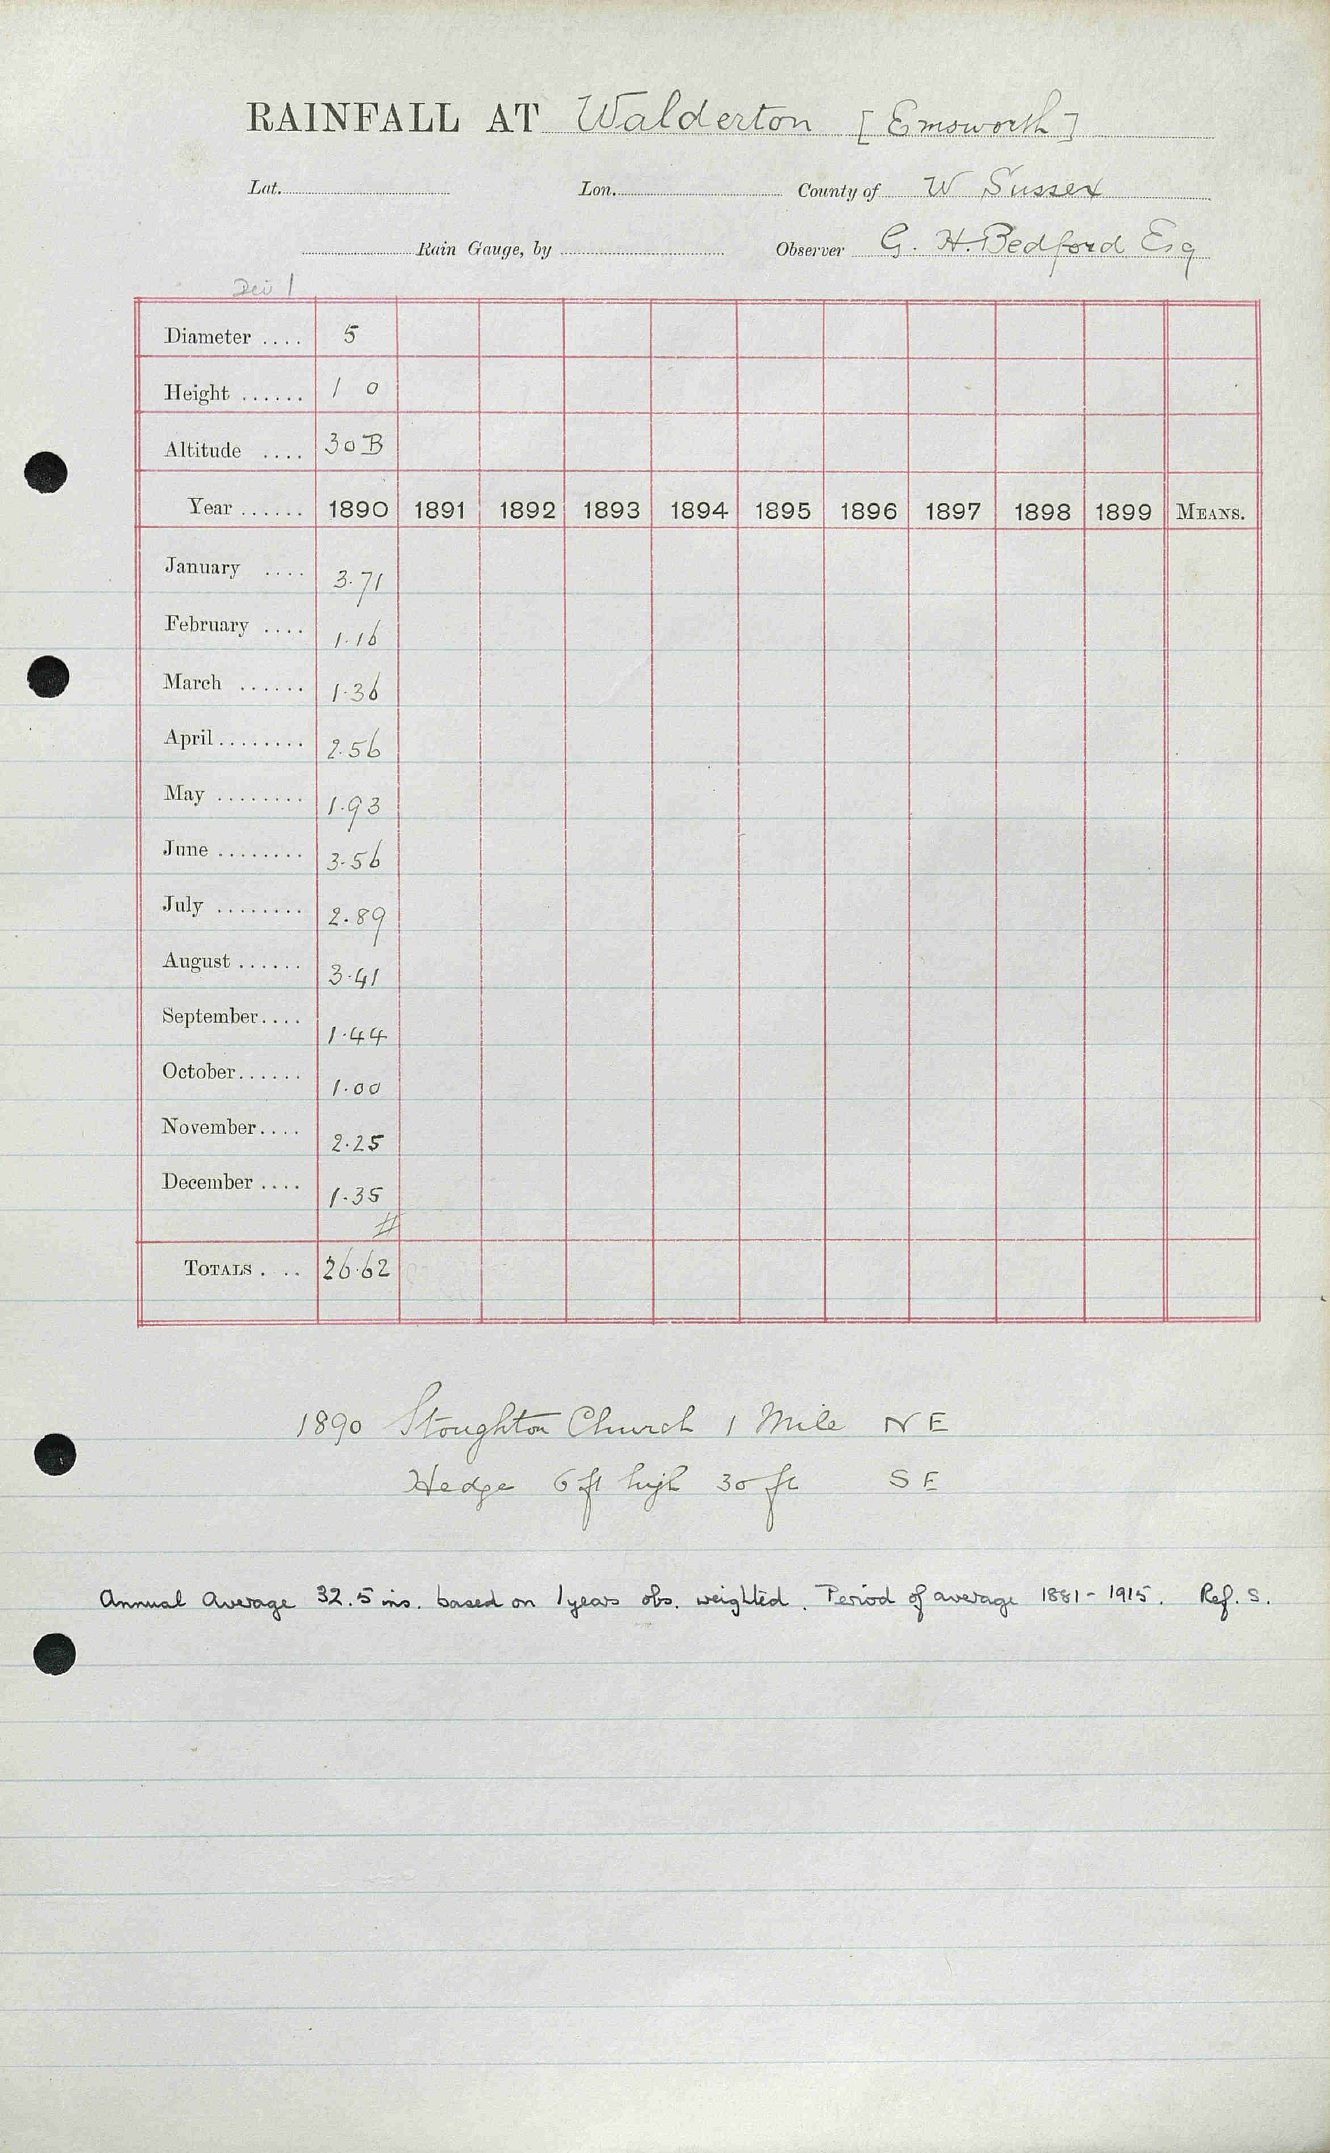 RAINFALL AT Walderton [Emsworth]
Lat. Lon. County of W Sussex
Rain Gauge, by Observer G. H. Bedford Esq
Diameter .... 5
Height ...... 1 0
Altitude .... 30 B
Year ...... 1890 1891 1892 1893 1894 1895 1896 1897 1898 1899 MEANS.
January .... 3.71
February .... 1.16
March ...... 1.36
April ........ 2.56
May ........ 1.93
June ........ 3.56
July ........ 2.89
August ...... 3.41
September.... 1.44
October...... 1.00
November.... 2.25
December .... 1.35
#
TOTALS . .. 26.62
1890 Stoughton Church 1 Mile NE
Hedge 6 ft high 30 ft SE
Annual Average 32.5 ins. based on 1 years obs. weighted. Period of average 1881-1915. Ref. S.